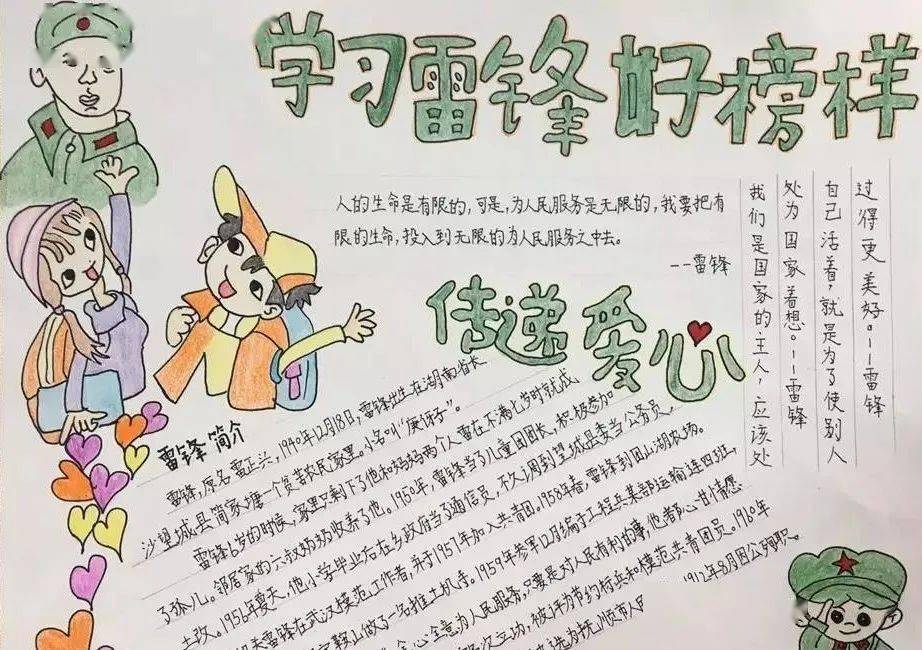 学习雷锋好榜样
人的生命是有限的,可是,为人民服务是无限的,我要把有
限的生命,投入到无限的为人民服务之中去。
--雷锋
过得更美好。--雷锋
自己活着,就是为了使别人
处为国家着想。--雷锋
我们是国家的主人,应该处
传递爱心
雷锋简介
雷锋,原名雷正兴,1940年12月18日,雷锋出生在湖南省长
沙望城县简家塘一个贫苦农民家里。小名叫“庚伢子”。
雷锋6岁的时候,家里只剩下了他和妈妈两个人雷在不满七岁时就成
了孤儿。邻居家的六叔奶奶收养了他。1950年,雷锋当了儿童团团长,积极参加
土改。1956年夏天,他小学毕业右在乡政府当了通信员,不久调到望城县委当公务员,
雷锋在武汉模范工作者,并于1957年加入共青团。1958年春,雷锋到团山湖农场。
鞍山做了一名推土机手。1959年参军12月编于工程兵某部运输连四班,
全心全意为人民服务,只要是对人民有利的事,他者都心甘情愿
次立功,被评为节约标兵和模范共青团员。1960年
选为抚顺市人
1912年8月因公殉职。